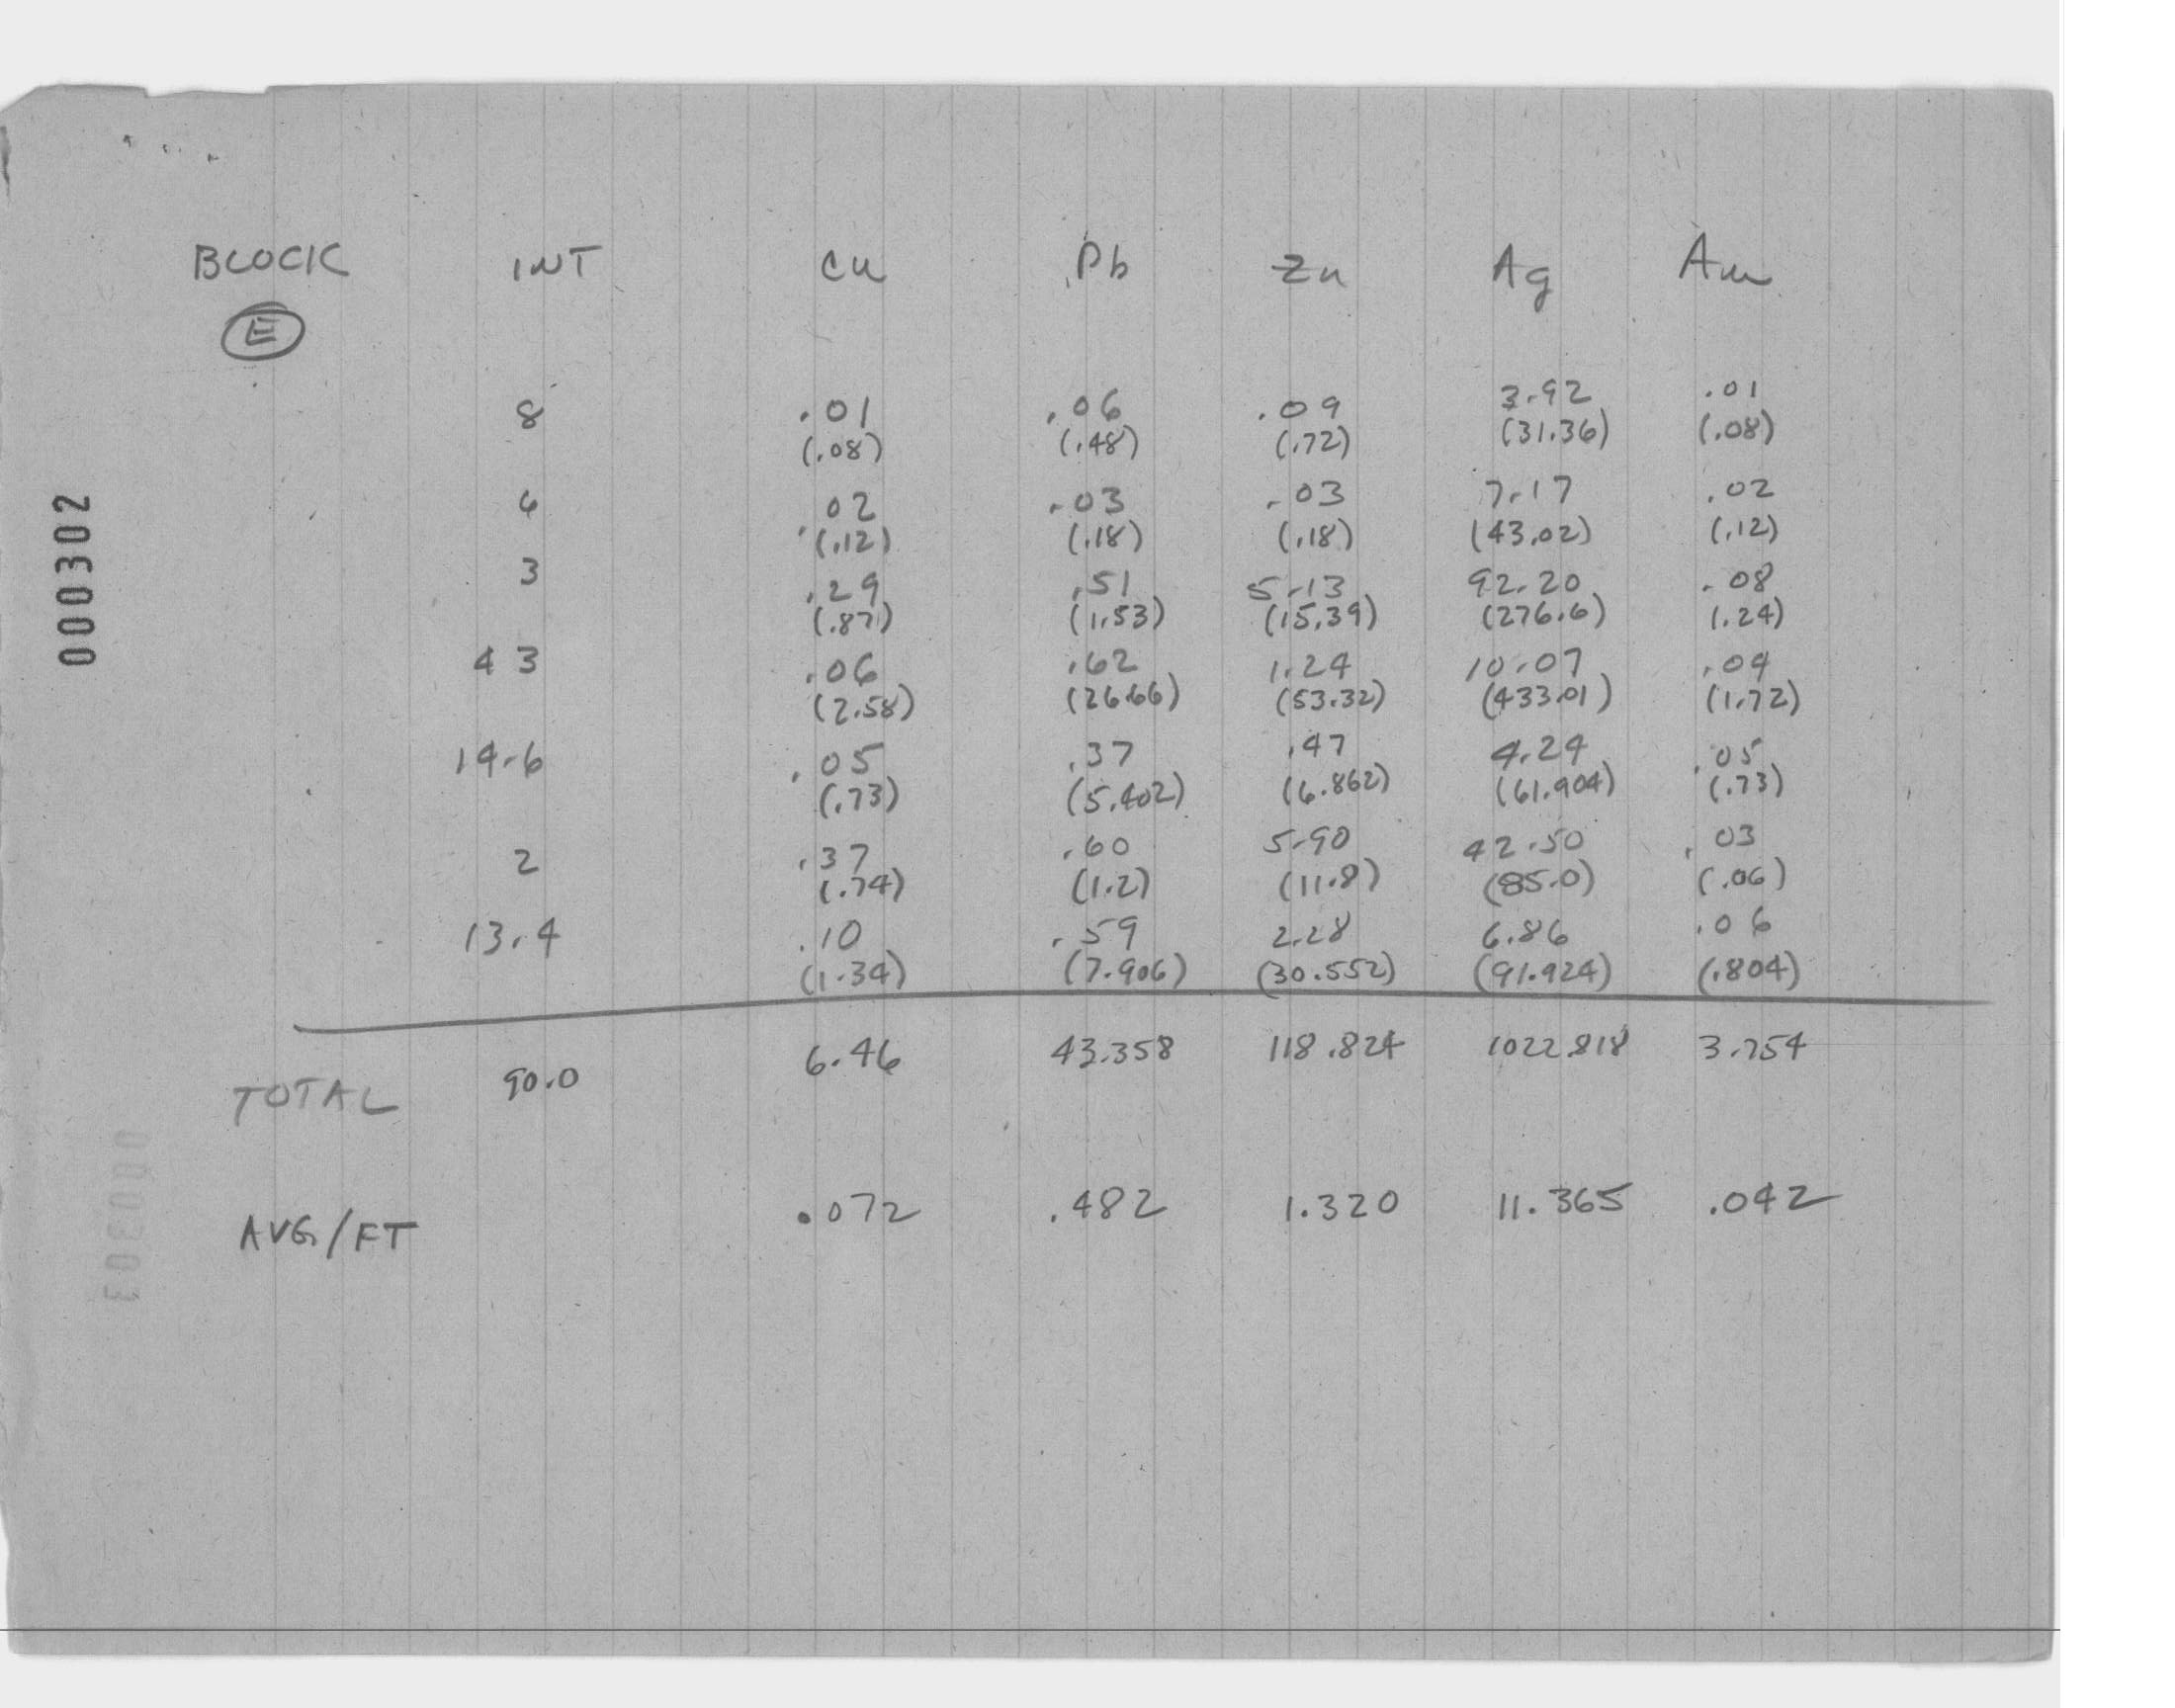 BLOCK INT Cu Pb Zn Ag Au
E
8 .01 .06 .09 3.92 .01
(.08) (.48) (.72) (31.36) (.08)
6 .02 .03 .03 7.17 .02
(.12) (.18) (.18) (43.02) (.12)
3 .29 .51 5.13 92.20 .08
(.87) (1.53) (15.39) (276.6) (.24)
43 .06 .62 1.24 10.07 .04
(2.58) (26.66) (53.32) (433.01) (1.72)
14.6 .05 .37 .47 4.24 .05
(.73) (5.402) (6.862) (61.904) (.73)
2 .37 .60 5.90 42.50 .03
(.74) (1.2) (11.8) (85.0) (.06)
13.4 .10 .59 2.28 6.86 .06
(1.34) (7.906) (30.552) (91.924) (.804)
TOTAL 90.0 6.46 43.358 118.824 1022.818 3.754
AVG/FT .072 .482 1.320 11.365 .042
000302
000303